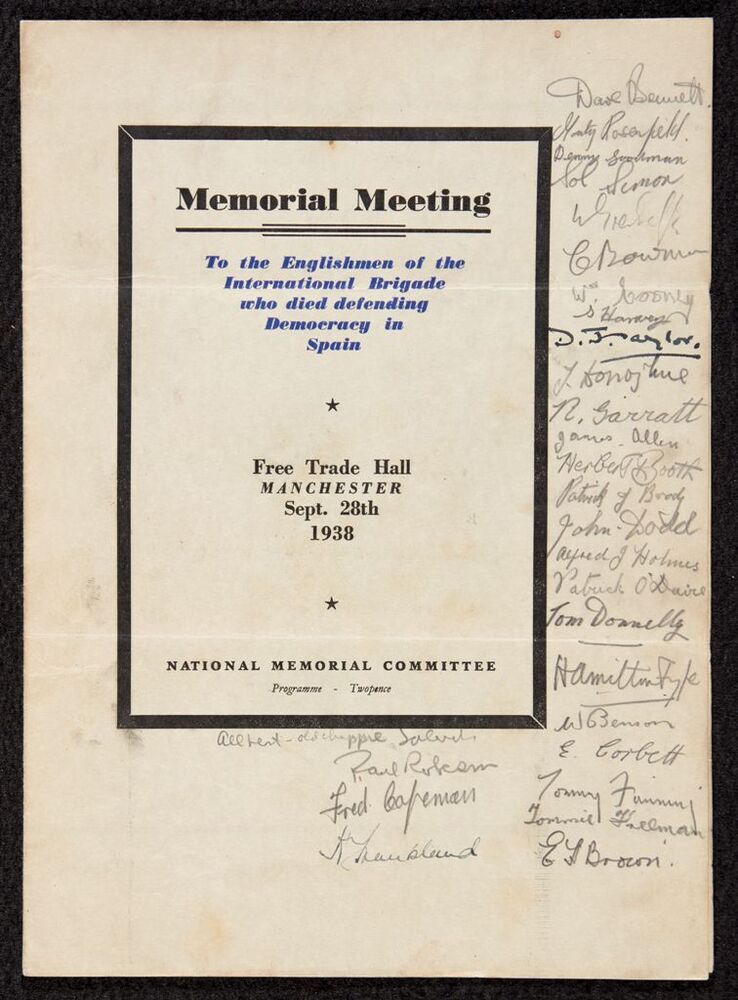 Memorial Meeting
To the Englishmen of the
International Brigade
who died defending
Democracy in
Spain
Free Trade Hall
MANCHESTER
Sept. 28th
1938
NATIONAL MEMORIAL COMMITTEE
Programme - Twopence
Dave Bennett.
Monty Rosenfield.
Benny Goodman
Sol Simon
C Bowman
W. Cooney
S Harvey
D. J. Taylor.
J. Donoghue
R. Garratt
James Allen
Herbert Booth
Patrick J Brady
John Dodd
Alfred J Holmes
Patrick O'Daire
Tom Donnelly
Hamilton Fyfe
W Benson
E. Corbett
Tommy
Tommie Freeman
E S Brown.
All best - old chappie
Paul Robeson
Fred Copeman
Frankland